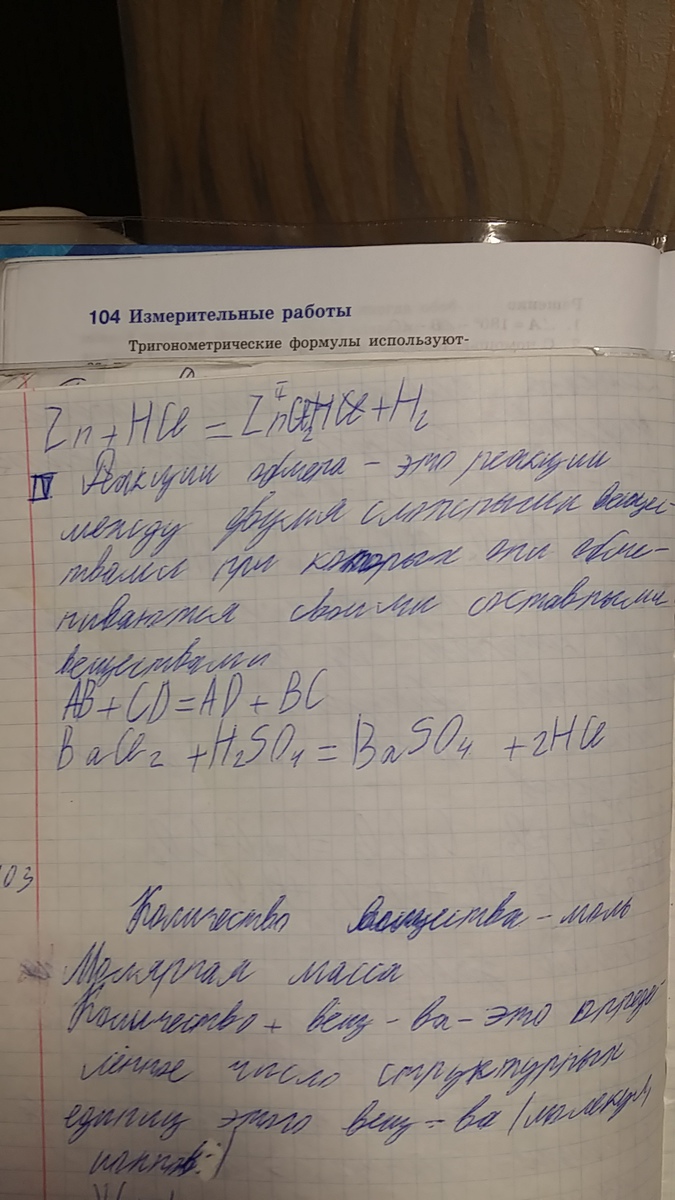 104 Измерительные работы
Тригонометрические формулы используют-
Zn + HCl = ZnCl2 + H2
IV Реакции обмена – это реакции
между двумя сложными вещес-
твами при которых они обме-
ниваются своими составными
веществами
AB + CD = AD + BC
BaCl2 + H2SO4 = BaSO4 + 2HCl
03
Количество вещества – моль
Молярная масса
Количество вещ-ва – это опреде
лённое число структурных
единиц этого вещ-ва (молекул,